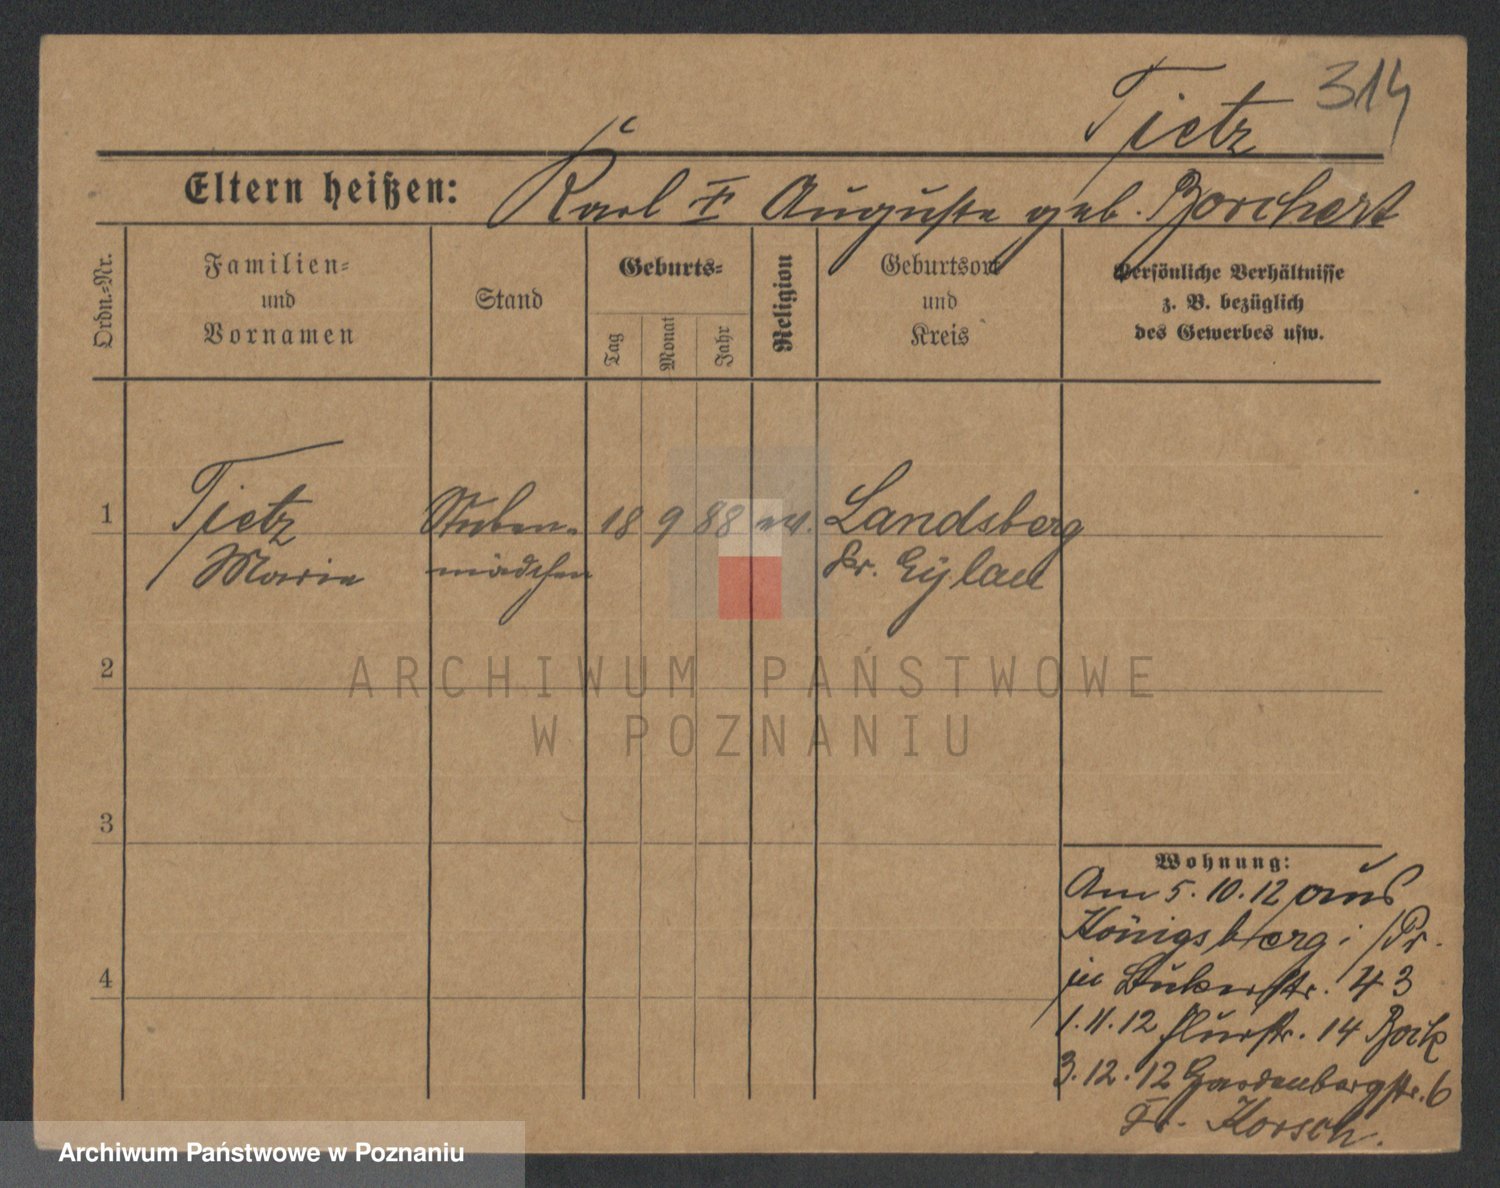 Tietz 314
Eltern heißen: Karl † Auguste geb. Borchert
Ordn.=Nr.
Familien=
und
Vornamen
Stand
Geburts=
Tag
Monat
Jahr
Religion
Geburtsort
und
Kreis
Persönliche Verhältnisse
z. B. bezüglich
des Gewerbes usw.
1 Tietz Stuben= 18 9 88 ev. Landsberg
Marie mädchen Kr. Eylau
2
3
4
Wohnung:
Am 5.10.12 aus
Königsberg i/Pr.
in 43
1.11.12 Flurstr. 14 Bork
3.12.12 6
Fr. Korsch.
ARCHIWUM PAŃSTWOWE
W POZNANIU
Archiwum Państwowe w Poznaniu